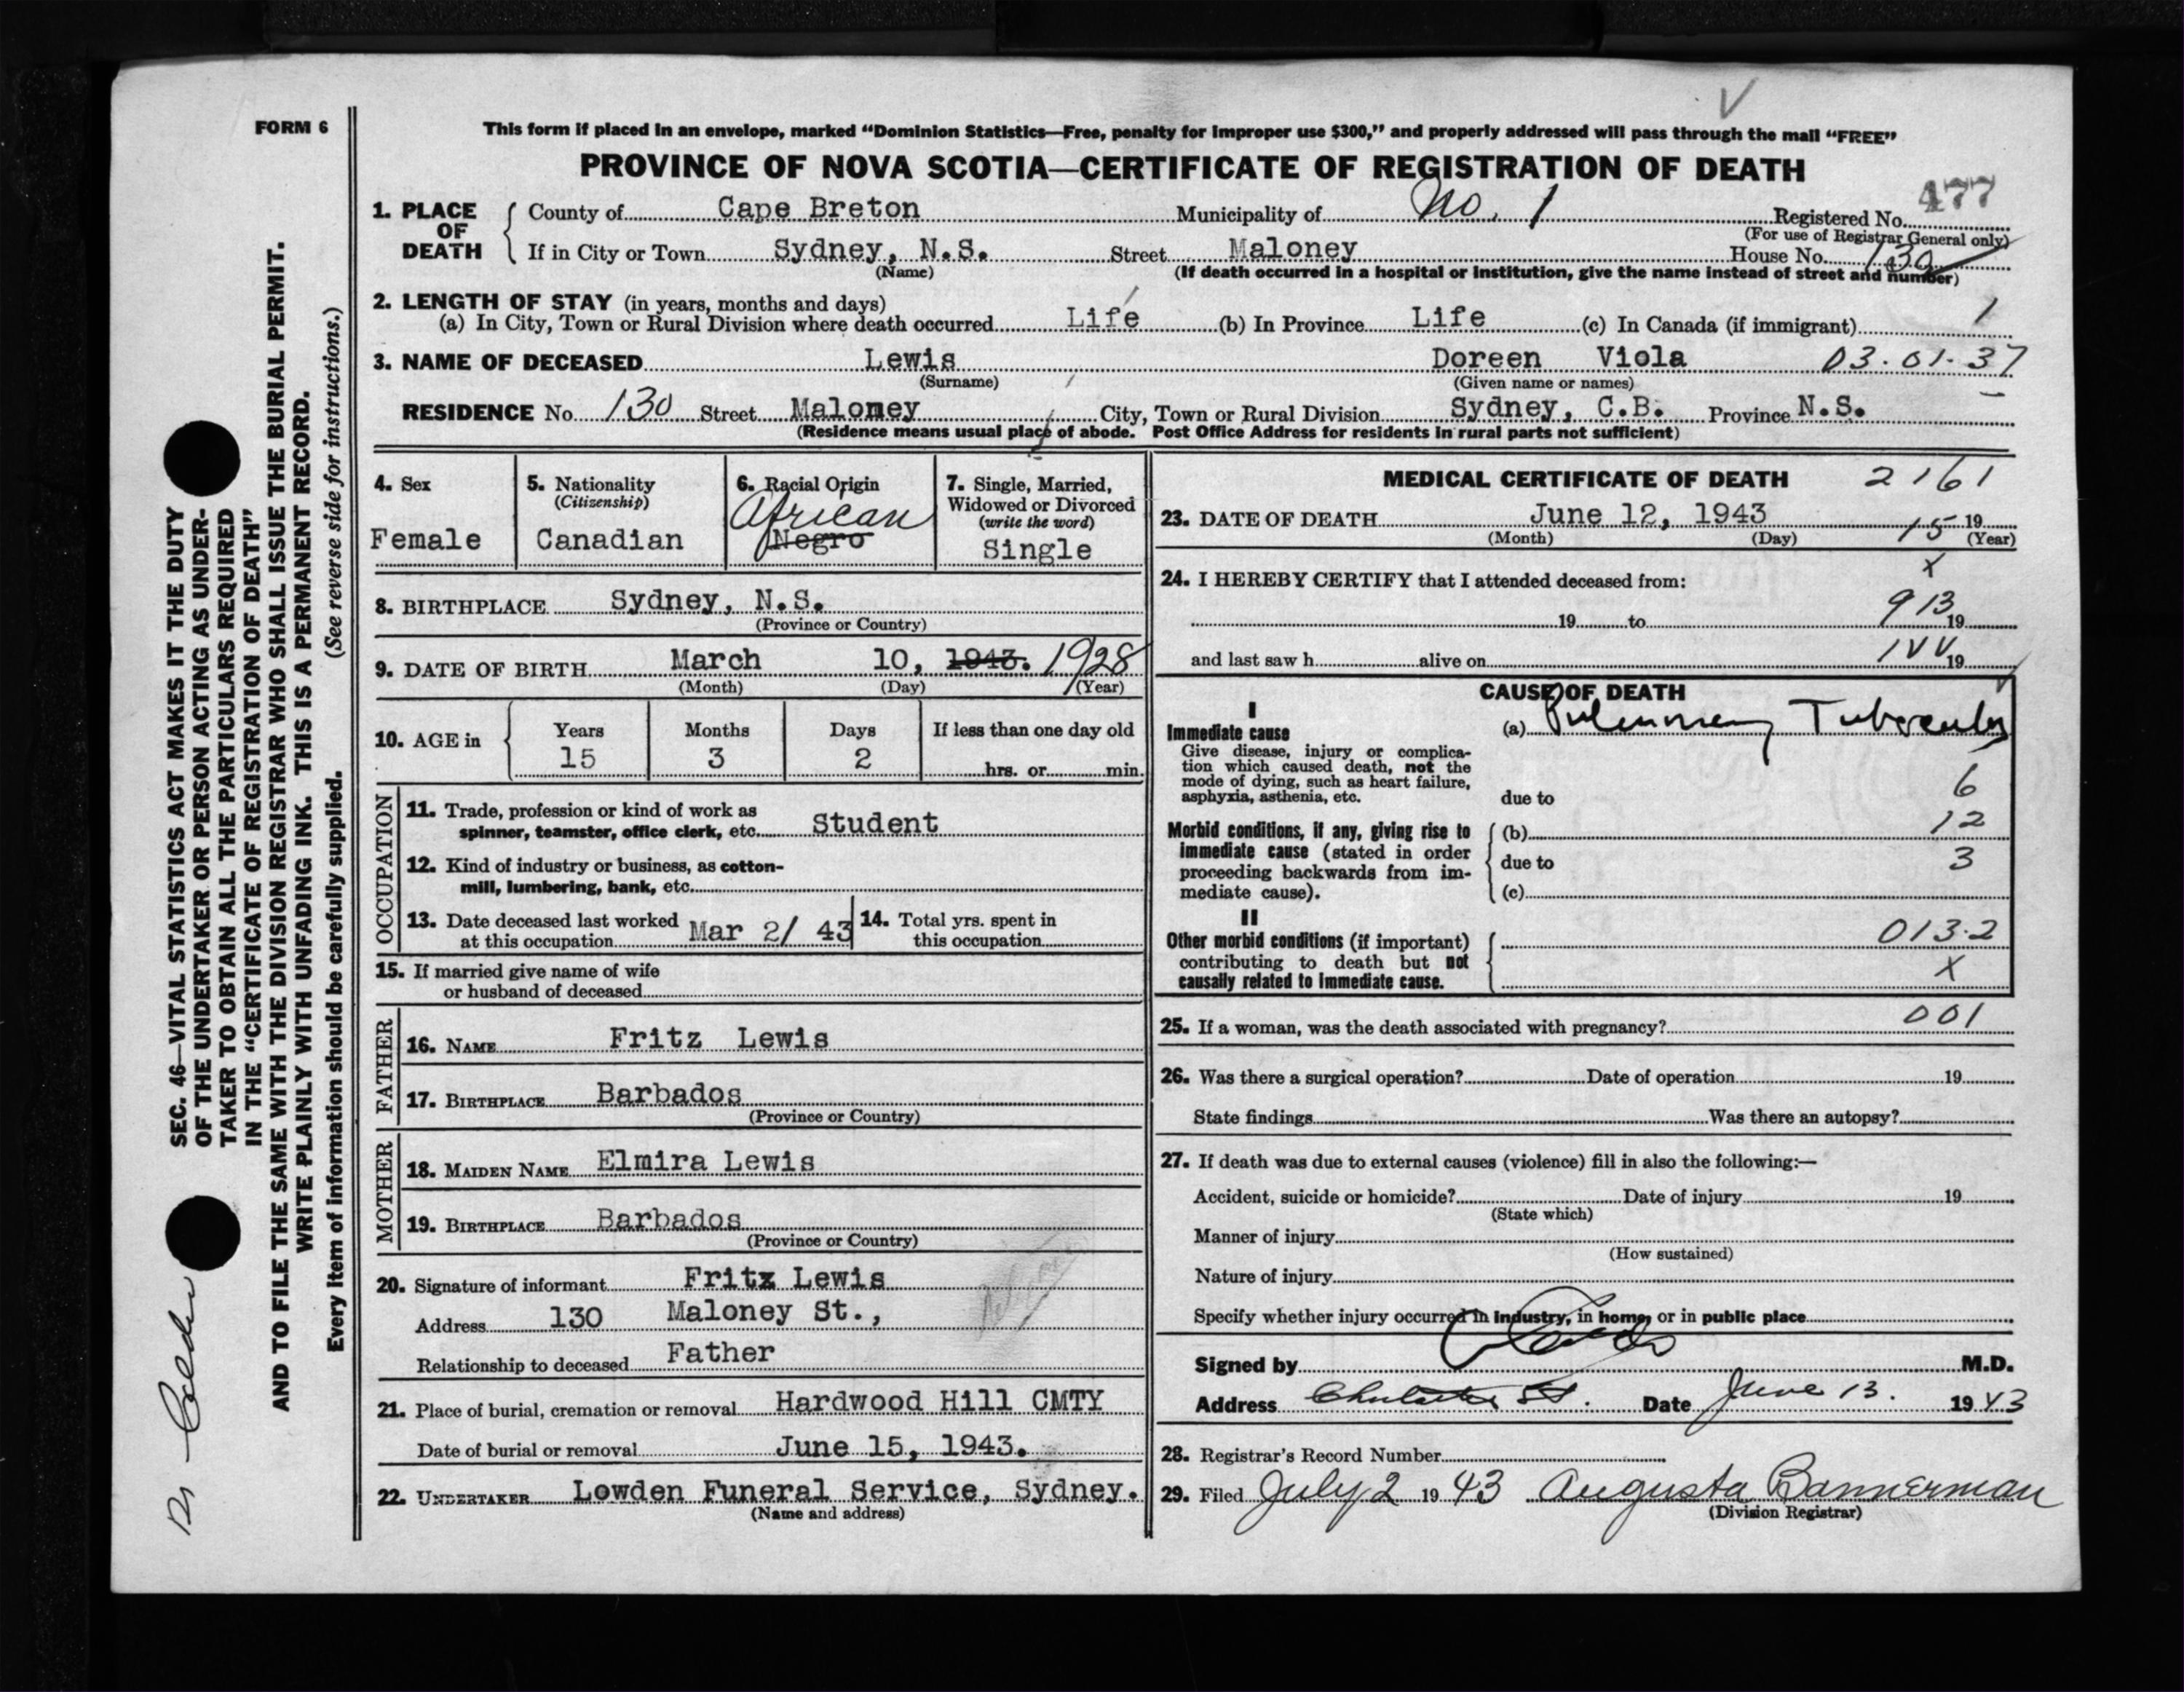 FORM 6
This form if placed in an envelope, marked “Dominion Statistics—Free, penalty for improper use $300,” and properly addressed will pass through the mail “FREE”
PROVINCE OF NOVA SCOTIA—CERTIFICATE OF REGISTRATION OF DEATH
477
1. PLACE OF DEATH County of Cape Breton Municipality of No. 1 Registered No.
(For use of Registrar General only)
If in City or Town Sydney, N.S. Street Maloney House No. 130
(Name) (If death occurred in a hospital or institution, give the name instead of street and number)
2. LENGTH OF STAY (in years, months and days)
(a) In City, Town or Rural Division where death occurred Life (b) In Province Life (c) In Canada (if immigrant) 1
3. NAME OF DECEASED Lewis Doreen Viola 03.01.37
(Surname) (Given name or names)
RESIDENCE No. 130 Street Maloney City, Town or Rural Division Sydney, C.B. Province N.S.
(Residence means usual place of abode. Post Office Address for residents in rural parts not sufficient)
4. Sex
Female
5. Nationality
(Citizenship)
Canadian
6. Racial Origin
African
Negro
7. Single, Married,
Widowed or Divorced
(write the word)
Single
8. BIRTHPLACE Sydney, N.S.
(Province or Country)
9. DATE OF BIRTH March 10, 1943. 1928
(Month) (Day) (Year)
10. AGE in Years Months Days If less than one day old
15 3 2 hrs. or min.
OCCUPATION
11. Trade, profession or kind of work as
spinner, teamster, office clerk, etc. Student
12. Kind of industry or business, as cotton-
mill, lumbering, bank, etc.
13. Date deceased last worked
at this occupation Mar 2/ 43
14. Total yrs. spent in
this occupation
15. If married give name of wife
or husband of deceased
FATHER
16. NAME Fritz Lewis
17. BIRTHPLACE Barbados
(Province or Country)
MOTHER
18. MAIDEN NAME Elmira Lewis
19. BIRTHPLACE Barbados
(Province or Country)
20. Signature of informant Fritz Lewis
Address 130 Maloney St.,
Relationship to deceased Father
21. Place of burial, cremation or removal Hardwood Hill CMTY
Date of burial or removal June 15, 1943.
22. UNDERTAKER Lowden Funeral Service, Sydney.
(Name and address)
MEDICAL CERTIFICATE OF DEATH 2161
23. DATE OF DEATH June 12, 1943 15 19
(Month) (Day) (Year)
X
24. I HEREBY CERTIFY that I attended deceased from:
913
19 to 19
and last saw h alive on 19
CAUSE OF DEATH
I
Immediate cause (a) Pulmonary Tuberculosis
Give disease, injury or complica-
tion which caused death, not the
mode of dying, such as heart failure,
asphyxia, asthenia, etc. due to 6
Morbid conditions, if any, giving rise to (b) 12
immediate cause (stated in order due to 3
proceeding backwards from im-
mediate cause). (c)
II
Other morbid conditions (if important) 013.2
contributing to death but not X
causally related to immediate cause.
25. If a woman, was the death associated with pregnancy? 001
26. Was there a surgical operation? Date of operation 19
State findings Was there an autopsy?
27. If death was due to external causes (violence) fill in also the following:—
Accident, suicide or homicide? Date of injury 19
(State which)
Manner of injury
(How sustained)
Nature of injury
Specify whether injury occurred in industry, in home, or in public place
Signed by M.D.
Address Date June 13. 1943
28. Registrar's Record Number
29. Filed July 2 1943 Augusta Bannerman
(Division Registrar)
SEC. 46—VITAL STATISTICS ACT MAKES IT THE DUTY
OF THE UNDERTAKER OR PERSON ACTING AS UNDER-
TAKER TO OBTAIN ALL THE PARTICULARS REQUIRED
IN THE “CERTIFICATE OF REGISTRATION OF DEATH”
AND TO FILE THE SAME WITH THE DIVISION REGISTRAR WHO SHALL ISSUE THE BURIAL PERMIT.
WRITE PLAINLY WITH UNFADING INK. THIS IS A PERMANENT RECORD.
Every item of information should be carefully supplied. (See reverse side for instructions.)